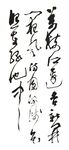 萬樹江邊杏新開
一夜風滿園深淺色
照在綠波中